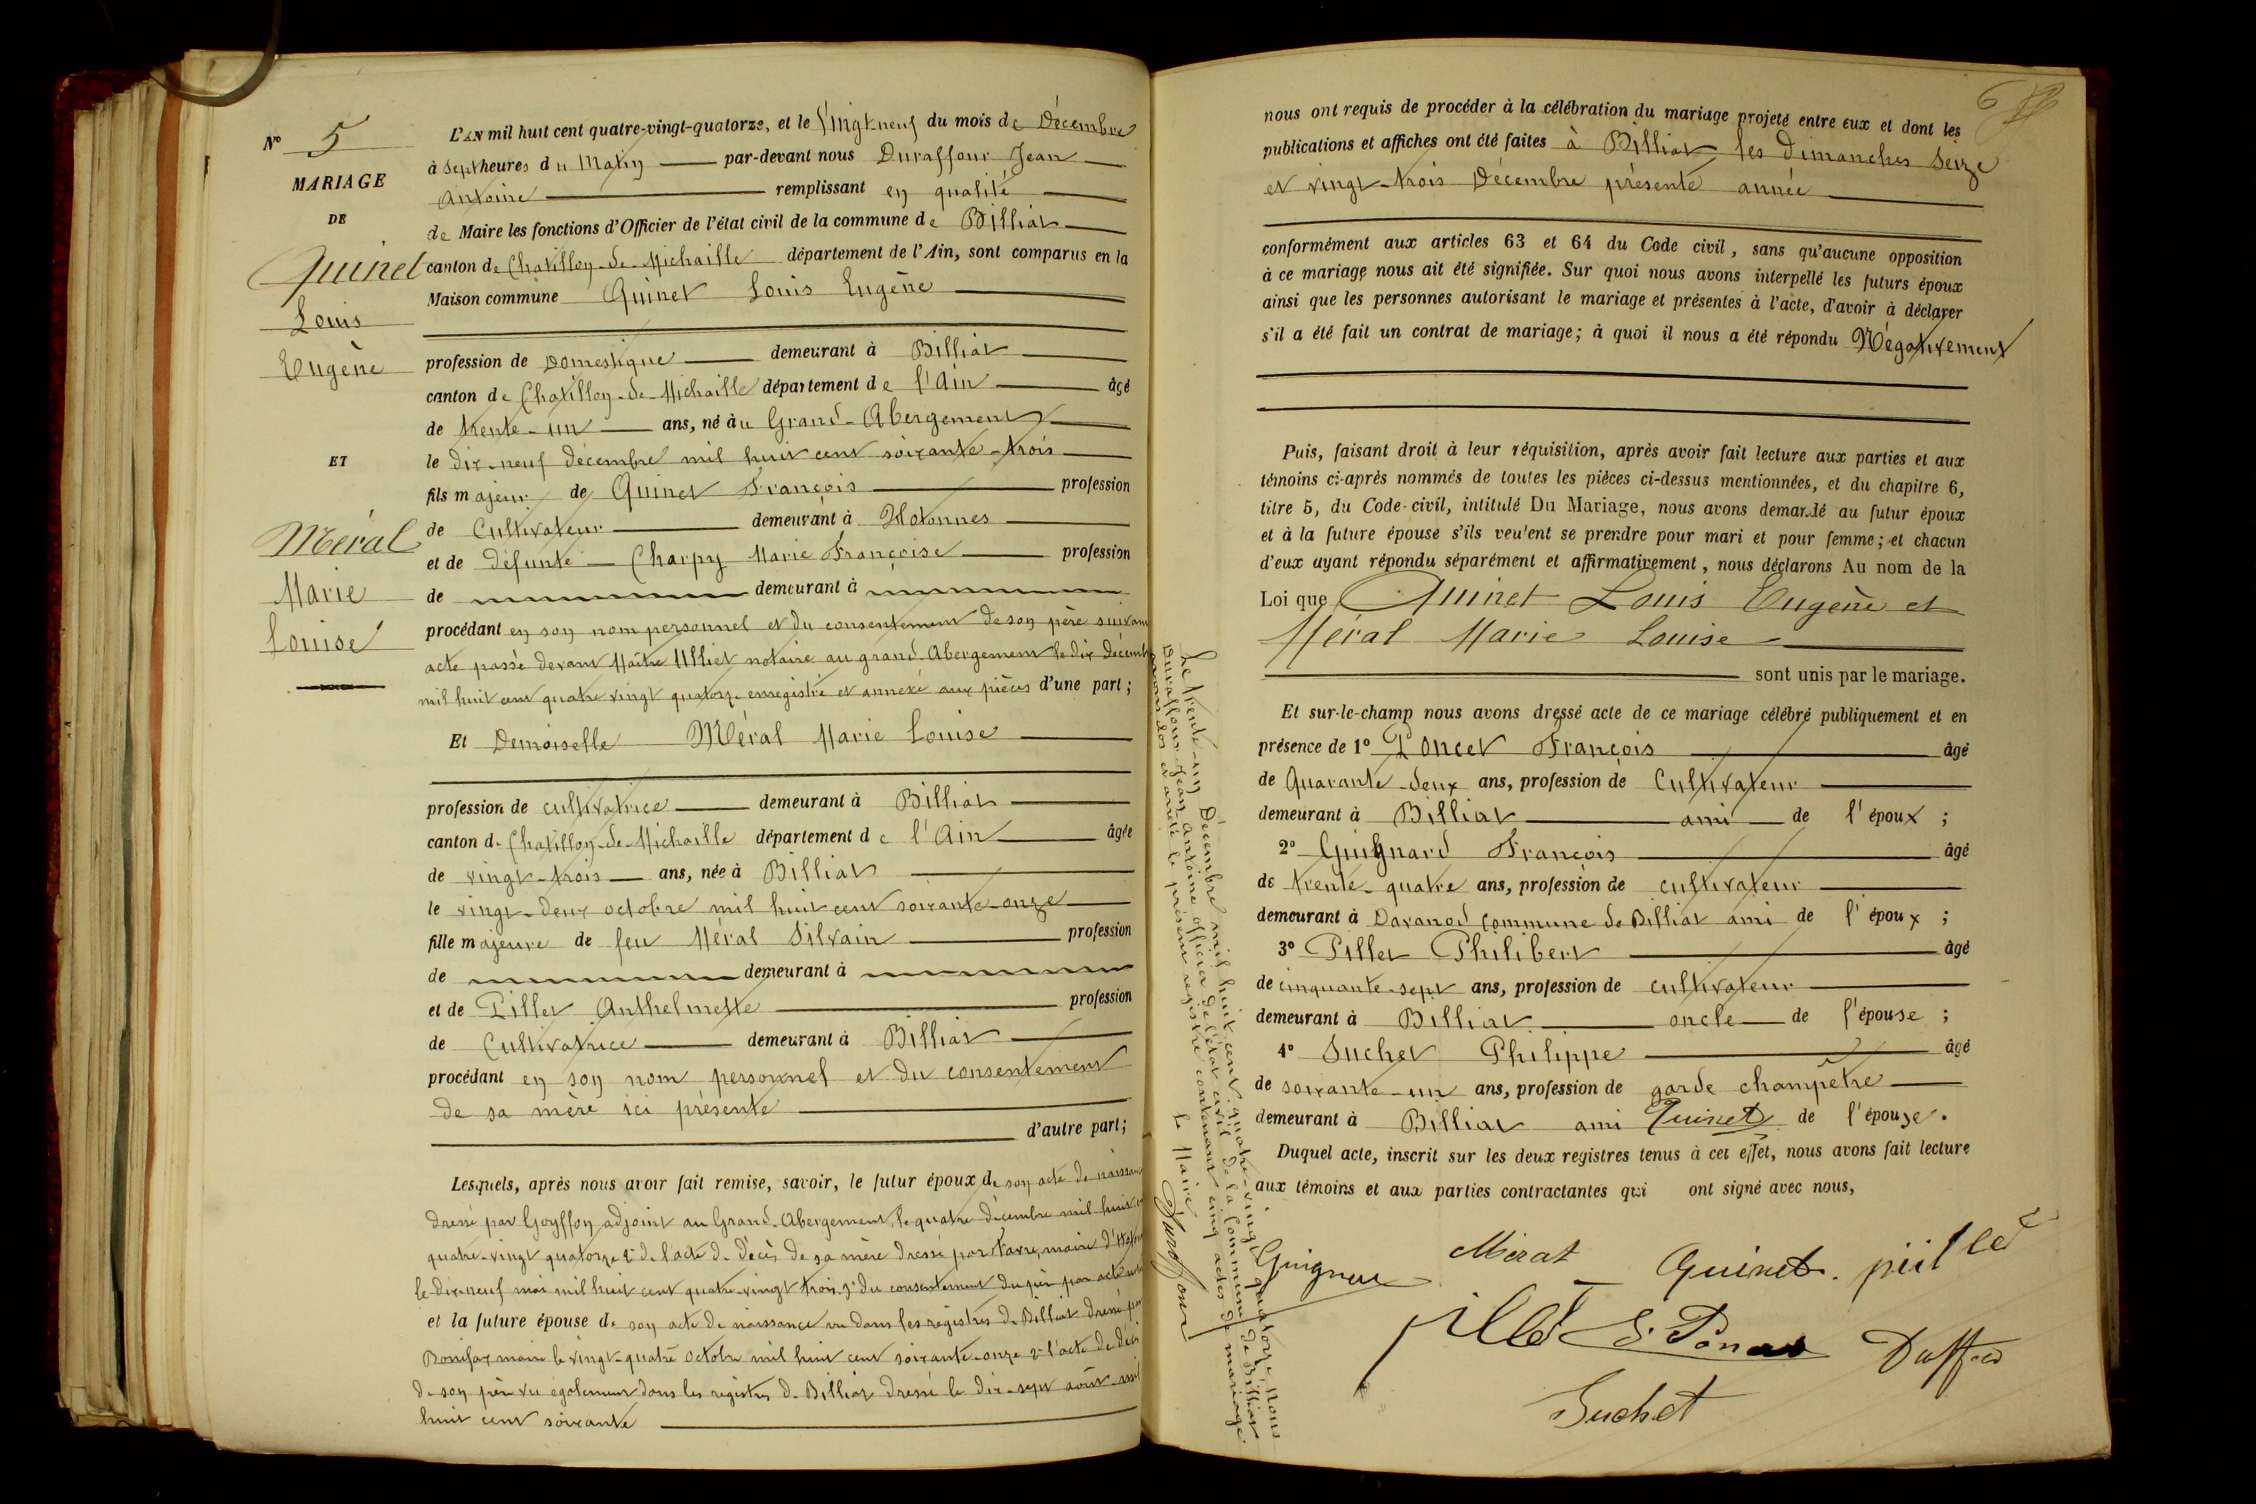 Nº 5
MARIAGE
DE
Quinet
Louis
Eugène
ET
Méral
Marie
Louise
L'AN mil huit cent quatre-vingt-quatorze, et le Vingt neuf du mois de Décembre
à sept heures du Matin par-devant nous Duraffour Jean
Antoine remplissant en qualité
de Maire les fonctions d'Officier de l'état civil de la commune de Billiat
canton de Chatillon-de-Michaille département de l'Ain, sont comparus en la
Maison commune Quinet Louis Eugène
profession de Domestique demeurant à Billiat
canton de Chatillon-de-Michaille département de l'Ain âgé
de trente-un ans, né au Grand-Abergement
le dix-neuf décembre mil huit cent soixante-trois
fils majeur de Quinet François profession
de Cultivateur demeurant à Hotonnes
et de défunte Charpy Marie Françoise profession
de demeurant à
procédant en son nom personnel et du consentement de son père suivant
acte passé devant Maître Ulliet notaire au grand-Abergement le dix décembre
mil huit cent quatre vingt quatorze enregistré et annexé aux pièces d'une part ;
Et Demoiselle Méral Marie Louise
profession de cultivatrice demeurant à Billiat
canton de Chatillon-de-Michaille département de l'Ain âgée
de vingt-trois ans, née à Billiat
le vingt-deux octobre mil huit cent soixante-onze
fille majeure de feu Méral Silvain profession
de demeurant à
et de Pillet Anthelmette profession
de Cultivatrice demeurant à Billiat
procédant en son nom personnel et du consentement
de sa mère ici présente
d'autre part ;
Lesquels, après nous avoir fait remise, savoir, le futur époux de son acte de naissance
dressé par Goyffon adjoint au Grand-Abergement, le quatre décembre mil huit
quatre-vingt quatorze 2º de l'acte de décès de sa mère dressé par Favre, maire
le dix-neuf mai mil huit cent quatre-vingt trois, 3º du consentement du père par acte
et la future épouse de son acte de naissance vu dans les registres de Billiat dressé par
Bonifax maire le vingt-quatre octobre mil huit cent soixante-onze 2º l'acte de décès
de son père vu également dans les registres de Billiat dressé le dix-sept août mil
huit cent soixante
Le trente-un Décembre mil huit cent quatre-vingt quatorze, Nous
Duraffour Jean Antoine officier de l'état civil de la commune de Billiat
avons clos et arrêté le présent registre contenant cinq actes de mariage
le Maire
Duraffour
nous ont requis de procéder à la célébration du mariage projeté entre eux et dont les
publications et affiches ont été faites à Billiat les dimanches seize
et vingt-trois Décembre présente année
conformément aux articles 63 et 64 du Code civil, sans qu'aucune opposition
à ce mariage nous ait été signifiée. Sur quoi nous avons interpellé les futurs époux
ainsi que les personnes autorisant le mariage et présentes à l'acte, d'avoir à déclarer
s'il a été fait un contrat de mariage ; à quoi il nous a été répondu Négativement
Puis, faisant droit à leur réquisition, après avoir fait lecture aux parties et aux
témoins ci-après nommés de toutes les pièces ci-dessus mentionnées, et du chapitre 6,
titre 5, du Code-civil, intitulé Du Mariage, nous avons demandé au futur époux
et à la future épouse s'ils veulent se prendre pour mari et pour femme ; et chacun
d'eux ayant répondu séparément et affirmativement, nous déclarons Au nom de la
Loi que Quinet Louis Eugène et
Méral Marie Louise
sont unis par le mariage.
Et sur-le-champ nous avons dressé acte de ce mariage célébré publiquement et en
présence de 1º Poncet François âgé
de Quarante-deux ans, profession de Cultivateur
demeurant à Billiat ami de l'époux ;
2º Guignard François âgé
de trente-quatre ans, profession de cultivateur
demeurant à Davanod commune de Billiat ami de l'époux ;
3º Pillet Philibert âgé
de cinquante-sept ans, profession de cultivateur
demeurant à Billiat oncle de l'épouse ;
4º Suchet Philippe âgé
de soixante-un ans, profession de garde champêtre
demeurant à Billiat ami Quinet de l'épouse.
Duquel acte, inscrit sur les deux registres tenus à cet effet, nous avons fait lecture
aux témoins et aux parties contractantes qui ont signé avec nous,
Méral Quinet. pillet
pillet
Suchet